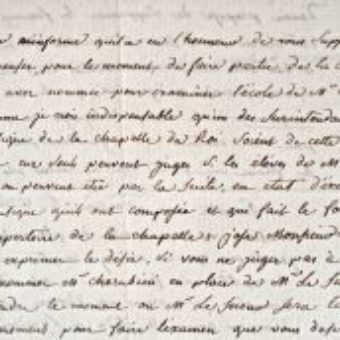 m'informe qu'il a eu l'honneur de vous supp
penser pour le moment, de faire partie de la c
avez nommée pour examiner l'école de Mr
je crois indispensable qu'un des Surintenda
sique de la chapelle du Roi, soient de cette
eux seuls peuvent juger si les eleves de M
ou peuvent etre par la suite, en etat d'exe
usique qu'ils ont composée et qui fait le fo
epertoire de la chapelle; j'ose Monsieur
exprimer le desir, si vous ne jugez pas à
nommer Mr. cherubini en place de Mr. Le Su
ndre le moment ou Mr. Le Sueur sera
pour faire l'examen que vous desi